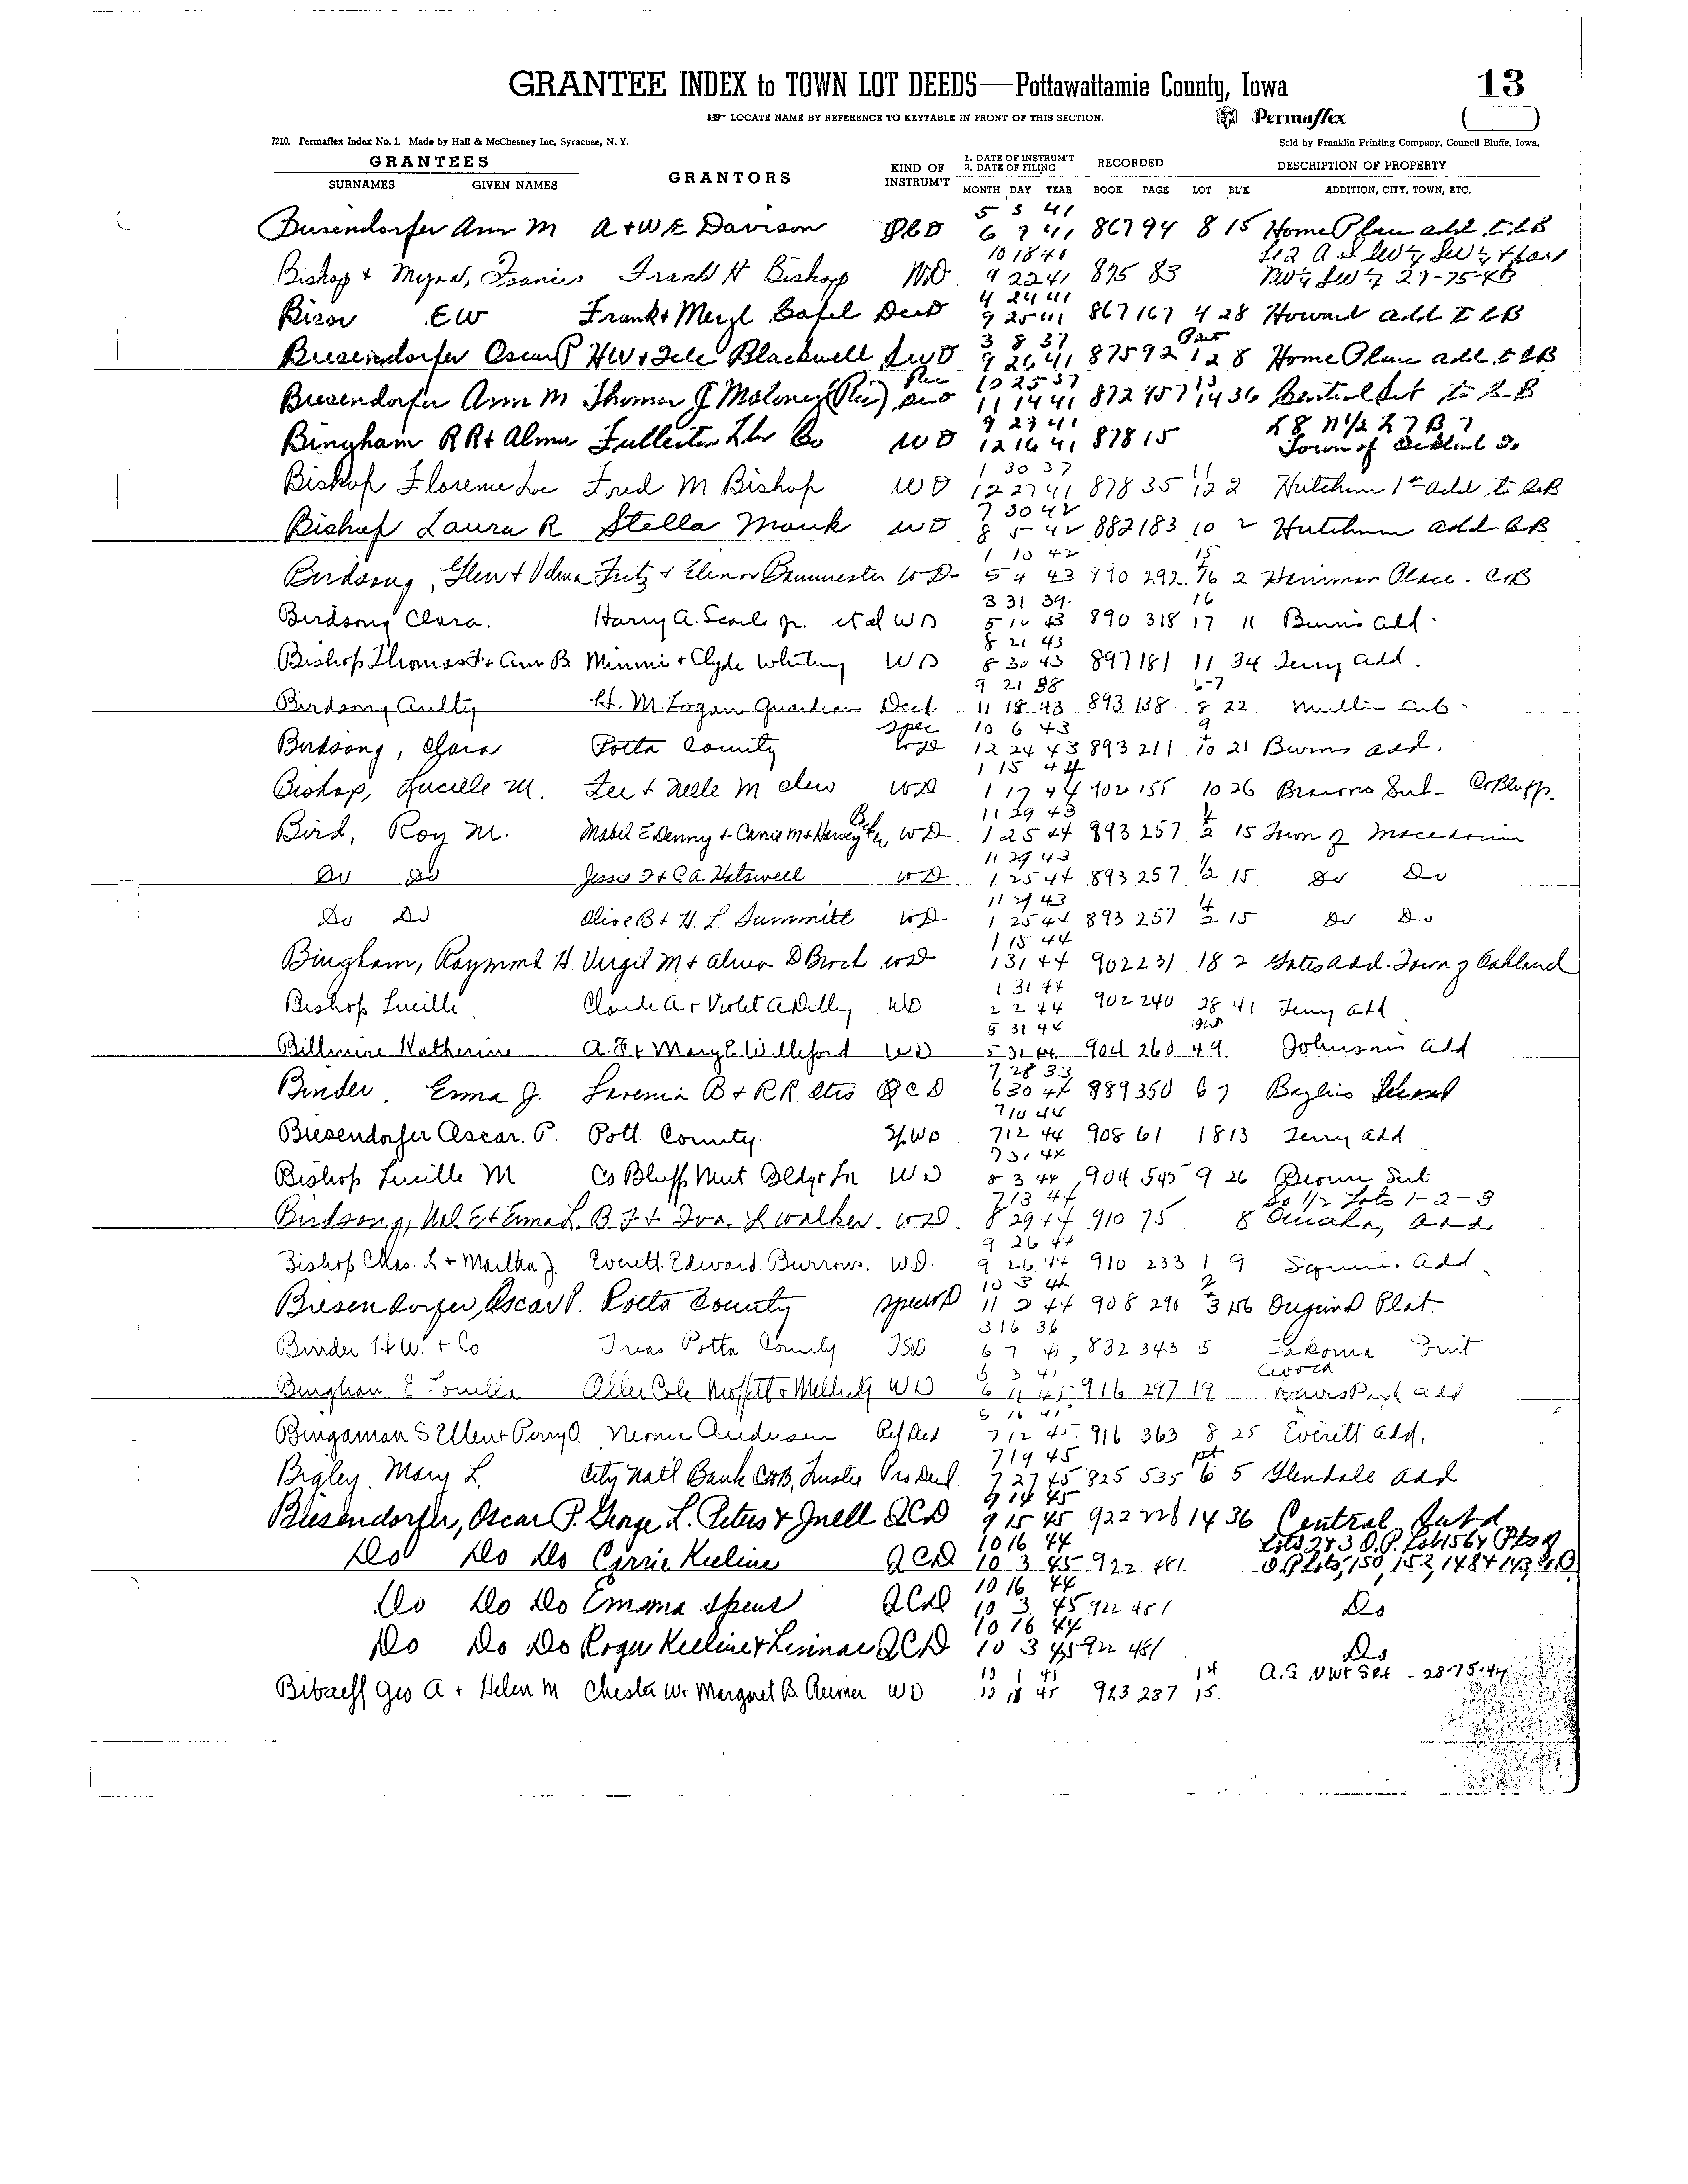 GRANTEE INDEX to TOWN LOT DEEDS—Pottawattamie County, Iowa 13
LOCATE NAME BY REFERENCE TO KEYTABLE IN FRONT OF THIS SECTION. Permaflex
7210. Permaflex Index No. 1. Made by Hall & McChesney Inc, Syracuse, N. Y. Sold by Franklin Printing Company, Council Bluffs, Iowa.
GRANTEES GRANTORS KIND OF INSTRUM'T 1. DATE OF INSTRUM'T 2. DATE OF FILING RECORDED DESCRIPTION OF PROPERTY
SURNAMES GIVEN NAMES MONTH DAY YEAR BOOK PAGE LOT BL'K ADDITION, CITY, TOWN, ETC.
5 3 41
Biesendorfer Ann M A + W E Davison 6 9 41 867 94 8 15 Home Place add
10 18 40
Bishop + Myrna, Francis Frank H Bishop WD 9 22 41 875 83 29-75-43
4 24 41
E W Frank + Meryl Deed 9 25 41 867 167 4 28 Howard add
3 8 37 Part
Biesendorfer Oscar P HW + Blackwell 9 26 41 875 92 12 8 Home Place add
10 25 37 13
Biesendorfer Ann M Thomas J Maloney 11 14 41 872 457 14 36 Central Sub
9 29 41 L 8 N 1/2 L 7 B 7
Bingham R R + Alma WD 12 16 41 878 15 Town of
1 30 37 11
Bishop Florence Fred M Bishop WD 12 27 41 878 35 12 2 1st add to CB
7 30 42
Bishop Laura R Stella Mauk WD 8 5 42 882 183 10 2 add CB
1 10 42 15
Birdsong, Glen + Velma Fritz + Elinor WD 5 4 43 890 292 16 2 Place - CB
3 31 39 16
Birdsong Clara. Harry A. Searle Jr. et al WD 5 10 43 890 318 17 11 Burns add.
8 21 43
Bishop Thomas F + Ann B. Minnie + Clyde Whiting WD 8 30 43 897 181 11 34 Terry add.
9 21 38 6-7
Birdsong Aulty H. M. Logan Guardian Deed 11 18 43 893 138 8 22 Mullin Sub.
spec 10 6 43 9
Birdsong, Clara Potta County WD 12 24 43 893 211 10 21 Burns add.
1 15 44
Bishop, Lucille M. Lee + Nelle M WD 1 17 44 902 155 10 26 Browns Sub - Co Bluffs.
11 29 43
Bird, Roy M. Mabel E Denny + Carrie M + Harvey WD 1 25 44 893 257 15 Town of Macedonia
11 29 43
Do Do Jessie F + C. A. Hatswell WD 1 25 44 893 257 1/2 15 Do Do
11 29 43
Do Do Olive B + H. L. Summitt WD 1 25 44 893 257 15 Do Do
1 15 44
Bingham, Raymond H. Virgil M + Alma D Brock WD 1 31 44 902 231 18 2 Yates add. Town of Oakland
1 31 44
Bishop Lucille Claude A + Violet A Dilly WD 2 2 44 902 240 28 41 Terry add
5 31 44
Billmire Katherine A. F. + Mary E. Williford WD 5 31 44 904 260 49 Johnson's add
7 28 33
Binder, Erma J. B + R R. Otis QCD 6 30 44 889 350 6 7 Bayliss Second
7 10 44
Biesendorfer Oscar. P. Pott. County. Sp. WD 7 12 44 908 61 18 13 Terry add
7 31 44
Bishop Lucille M Co Bluffs Mut Bldg + Ln WD 8 3 44 904 545 9 26 Brown Sub
7 13 44 So 1/2 Lots 1-2-3
Birdsong, + Erma L. B. F. + Iva L Walker WD. 8 29 44 910 75 8 Omaha, add
9 26 44
Bishop Chas. L. + Martha J. Everett Edward Burrows. W.D. 9 26 44 910 233 1 9 Squires add
10 3 44 2
Biesendorfer, Oscar P. Potta County spec WD 11 2 44 908 290 3 156 Original Plat.
3 16 36
Binder H W. + Co. Treas Potta County TSD 6 7 41 832 343 5 Lakoma Fruit
5 3 41
Bingham E Louella Allen Cole Moffett + WD 6 11 45 916 297 19 Davis Park add
5 16 41
Bingaman S Ellen + Perry O. Andersen Ref Deed 7 12 45 916 363 8 25 Everett add.
7 19 45 pt
Bigley, Mary L. City Nat'l Bank CoB, Trustee Pro Deed 7 27 45 825 535 6 5 Glendale add
9 14 45
Biesendorfer, Oscar P. George L. Peters + Inell QCD 9 15 45 922 228 14 36 Central Subd
10 16 44 Lots 2 + 3 O.P. Lot 156
Do Do Do Carrie Keeline QCD 10 3 45 922 481 O.P. Lots, 150, 152, 148 + 143,
10 16 44
Do Do Do Emma Spens QCD 10 3 45 922 481 Do
10 16 44
Do Do Do Roger Keeline + QCD 10 3 45 922 481 Do
14 A.S NW+ SE+ - 28-75-44
Bibaeff Geo A + Helen M Chester W + Margaret B. WD 923 287 15.